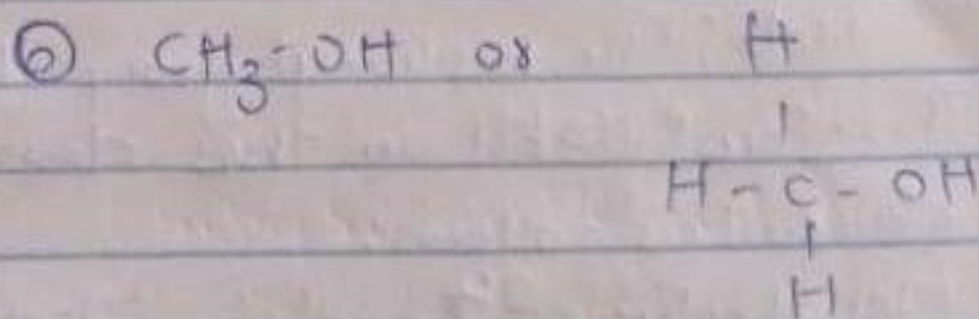 ⑥ CH₃-OH or H
|
H - C - OH
|
H